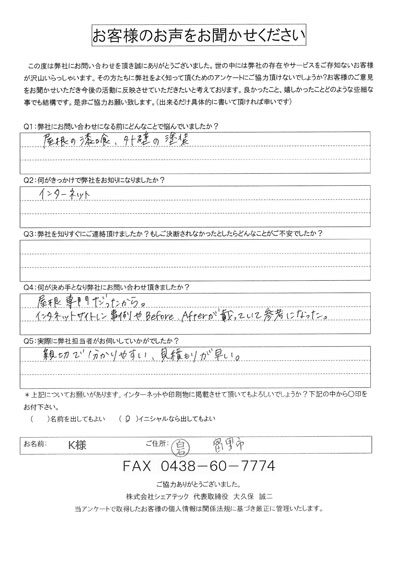 お客様のお声をお聞かせください
この度は弊社にお問い合わせを頂き誠にありがとうございました。世の中には弊社の存在やサービスをご存知ないお客様
が沢山いらっしゃいます。その方たちに弊社をよく知って頂くためのアンケートにご協力頂けないでしょうか?お客様のご意見
をお聞かせいただき今後の活動に反映させていただきたいと考えております。良かったこと、嬉しかったことどのような些細な
事でも結構です。是非ご協力お願い致します。(出来るだけ具体的に書いて頂ければ幸いです)
Q1:弊社にお問い合わせになる前にどんなことで悩んでいましたか?
屋根の漆喰、外壁の塗装
Q2:何がきっかけで弊社をお知りになりましたか?
インターネット
Q3:弊社を知りすぐにご連絡頂けましたか?もしご決断されなかったとしたらどんなことがご不安でしたか?
Q4:何が決め手となり弊社にお問い合わせ頂きましたか?
屋根専門だったから。
インタネットサイトに事例やBefore、Afterが載っていて参考になった。
Q5:実際に弊社担当者がお伺いしていかがでしたか?
親切で分かりやすい、見積もりが早い。
*上記についてお願いがあります。インターネットや印刷物に掲載させて頂いてもよろしいでしょうか?下記の中から〇印を
お付下さい。
( )名前を出してもよい ( O )イニシャルなら出してもよい
お名前: K様 ご住所: 君津市
FAX 0438-60-7774
ご協力ありがとうございました。
株式会社シェアテック 代表取締役 大久保 誠二
当アンケートで取得したお客様の個人情報は関係法規に基づき厳正に管理いたします。